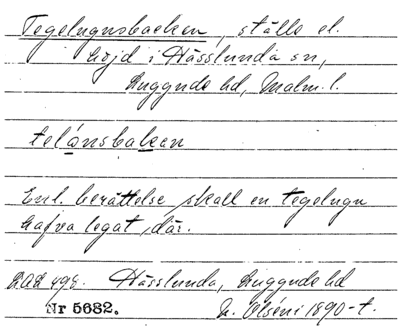 Tegelugnsbacken, ställe el.
höjd i Hässlunda sn,
Luggude hd, Malm. l.
telónsbaken
Enl. berättelse skall en tegelugn
hafva legat där.
Hässlunda, Luggude hd
Nr 5682.
N. Olséni 1890-t.